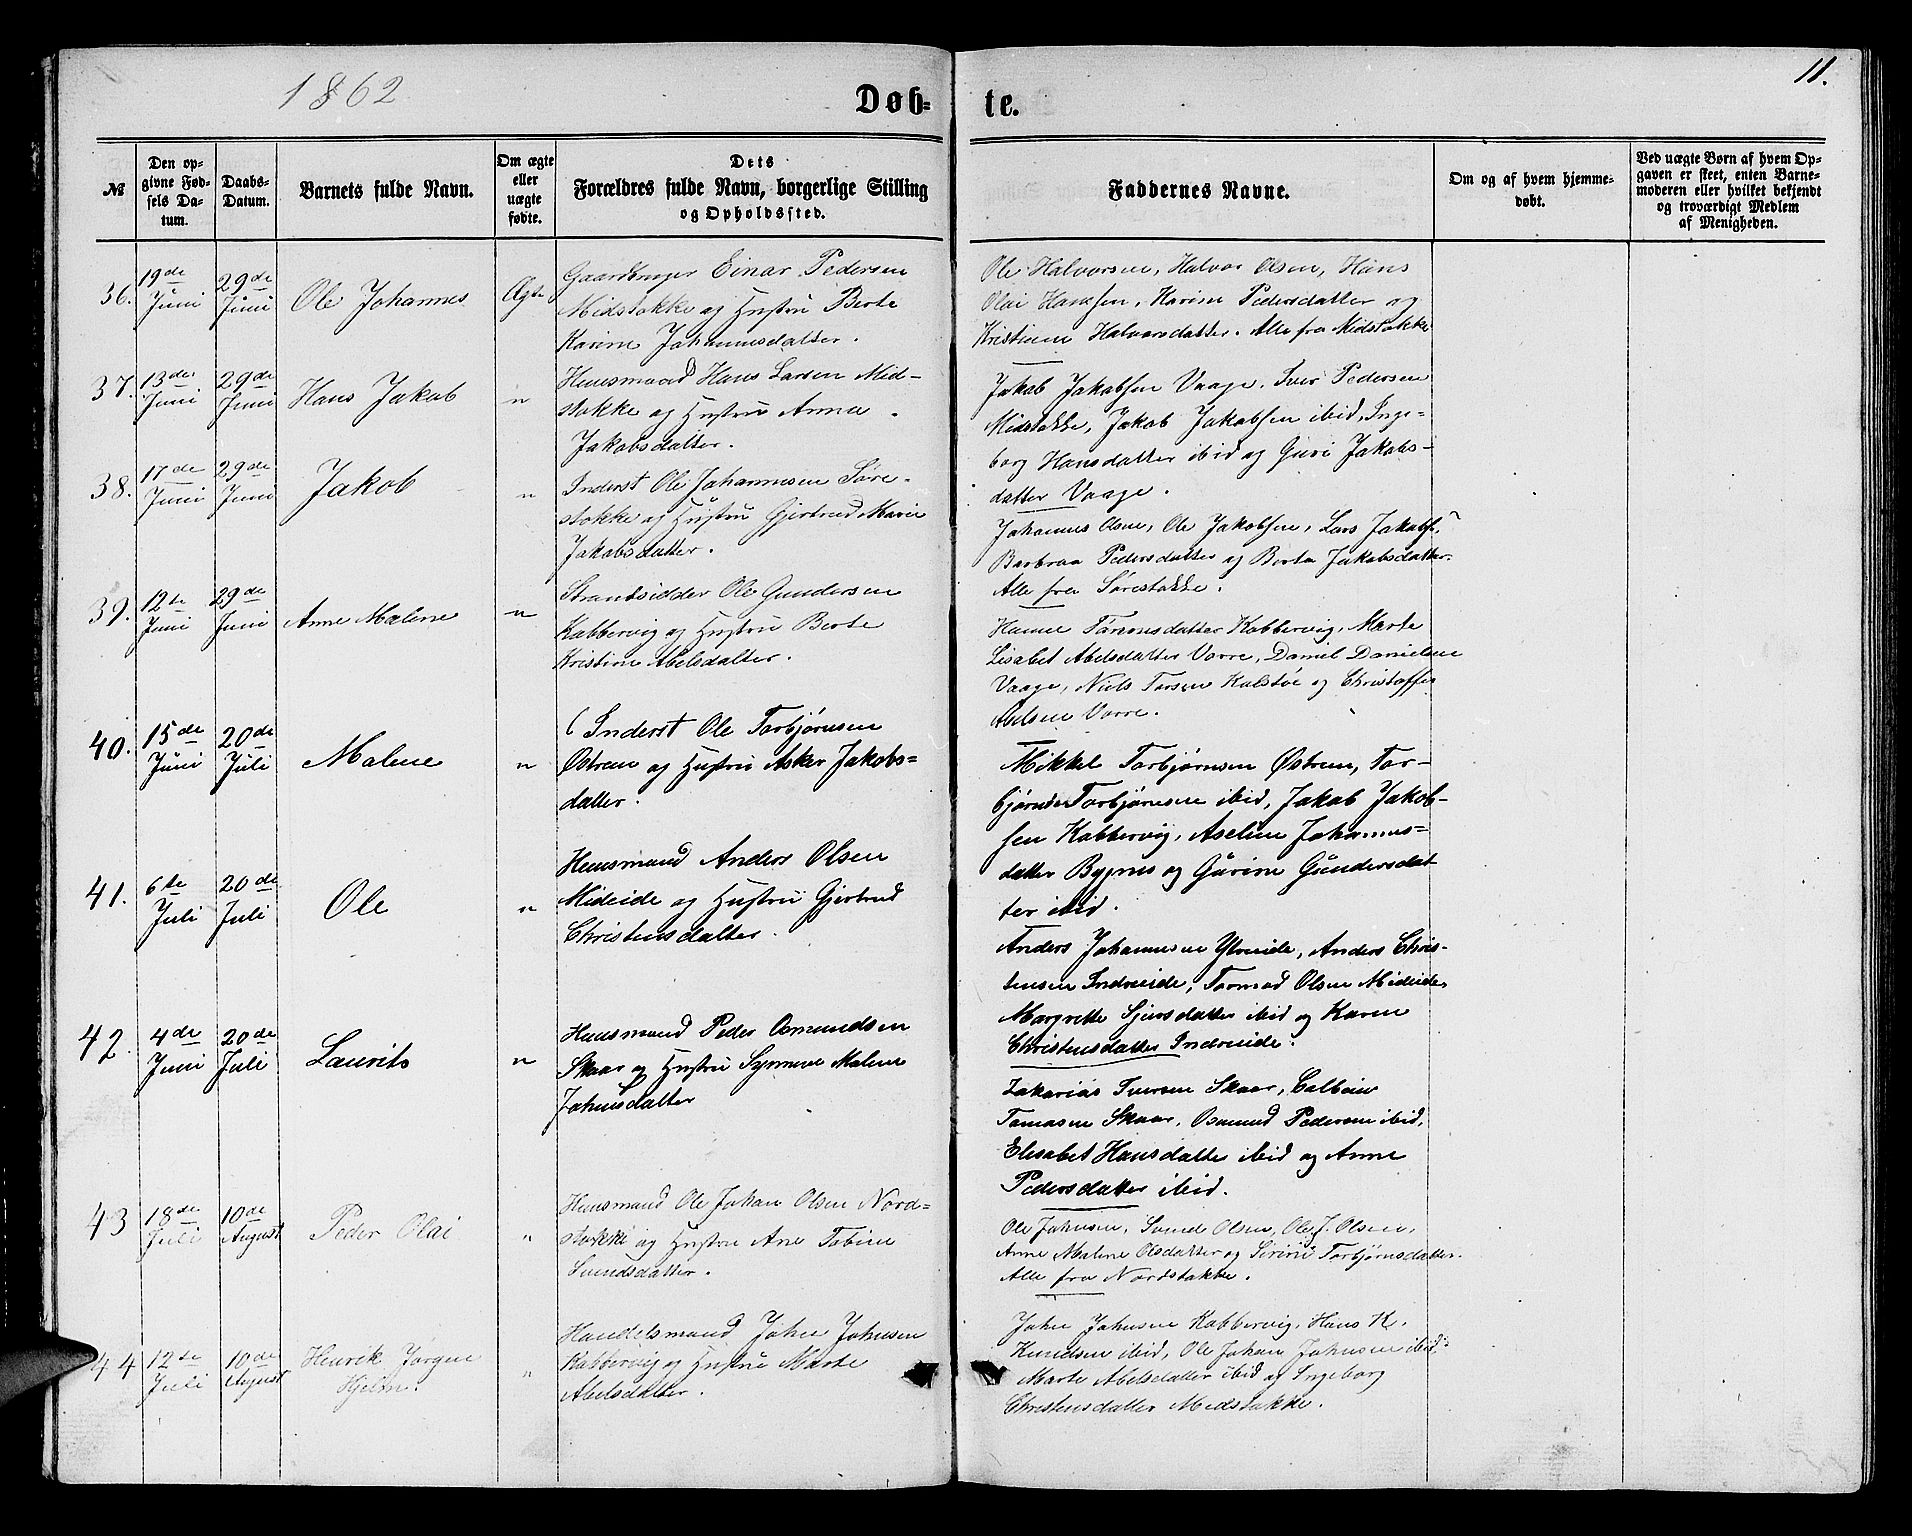 1862
11.
Døb-
te.
№
Den op-
givne Fød-
sels Da-
tum.
Daabs-
Datum.
Barnets fulde Navn.
Om ægte
eller
uægte
fødte.
Dets
Forældres fulde Navn, borgerlige Stilling
og Opholdssted.
Faddernes Navne.
Om og af hvem hjemme-
døbt.
Ved uægte Børn af hvem Op-
gaven er skeet, enten Barne-
moderen eller hvilket bekjendt
og troværdigt Medlem
af Menigheden.
36.
19de
Juni
29de
Juni
Ole Johannes
Ægte
Gaardbruger Einar Pedersen
Midstokke og Hustru Berte
Karine Johannesdatter.
Ole Halvorsen, Halvor Olsen, Hans
Olai Hansen, Karine Pedersdatter og
Kristiene Halvorsdatter. Alle fra Midstokke
37.
13de
Juni
29de
Juni
Hans Jakob
"
Huusmand Hans Larsen Mid-
stokke og Hustru Anna
Jakobsdatter.
Jakob Jakobsen Vaage, Iver Pedersen
Midstokke, Jakob Jakobsen ibid, Inge-
borg Hansdatter ibid og Guri Jakobs-
datter Vaage.
38.
17de
Juni
29de
Juni
Jakob
"
Inderst Ole Johannesen Søre-
stokke og Hustru Gjertrud Marie
Jakobsdatter.
Johannes Olsen, Ole Jakobsen, Lars Jakobs.
Barbraa Pedersdatter og Berta Jakobsdatter.
Alle fra Sørestokke.
39.
12te
Juni
29de
Juni
Anne Malene
"
Strandsidder Ole Gundersen
Kobbervig og Hustru Berte
Kristine Abelsdatter.
Hanne Tønnesdatter Kobbervig, Marte
Lisabet Abelsdatter Vorre, Daniel Danielsen
Vaage, Niels Torsen Kolstøe og Christoffer
Abelsen Vorre.
40.
15de
Juni
20de
Juli
Malene
"
Inderst Ole Torbjørnsen
Østrem og Hustru Asker Jakobs-
datter.
Mikkel Torbjørnsen Østrem, Tor-
bjørn Torbjørnsen ibid, Jakob Jakob-
sen Kobbervig, Aseline Johannes-
datter Bygnes og Gurine Gundersdat-
ter ibid.
41.
6te
Juli
20de
Juli
Ole
"
Huusmand Anders Olsen
Mideide og Hustru Gjertrud
Christensdatter.
Anders Johannesen Ytreeide, Anders Chris-
tensen Indreeide, Tormod Olsen Mideide,
Margrette Sjursdatter ibid og Karen
Christensdatter Indreeide.
42.
4de
Juni
20de
Juli
Laurits
"
Huusmand Peder Osmundsen
Skaar og Hustru Synneve Malene
Johnsdatter
Zakarias Iversen Skaar, Colbein
Tomasen Skaar, Osmund Pedersen ibid,
Elisabet Hansdatter ibid og Anne
Pedersdatter ibid.
43
18de
Juli
10de
August
Peder Olai
"
Huusmand Ole Johan Olsen Nord-
stokke og Hustru Ane Tobine
Svendsdatter.
Ole Johnsen, Svend Olsen, Ole J. Olsen,
Anne Malene Olsdatter og Sirine Torbjørnsdatter.
Alle fra Nordstokke.
44
12te
Juli
10de
August
Henrik Jørgen
Hjelm.
"
Handelsmand John Johnsen
Kobbervig og Hustru Marte
Abelsdatter.
John Johnsen Kobbervig, Hans K.
Knudsen ibid, Ole Johan Johnsen ibid.
Marte Abelsdatter ibid og Ingeborg
Christensdatter Midstokke.